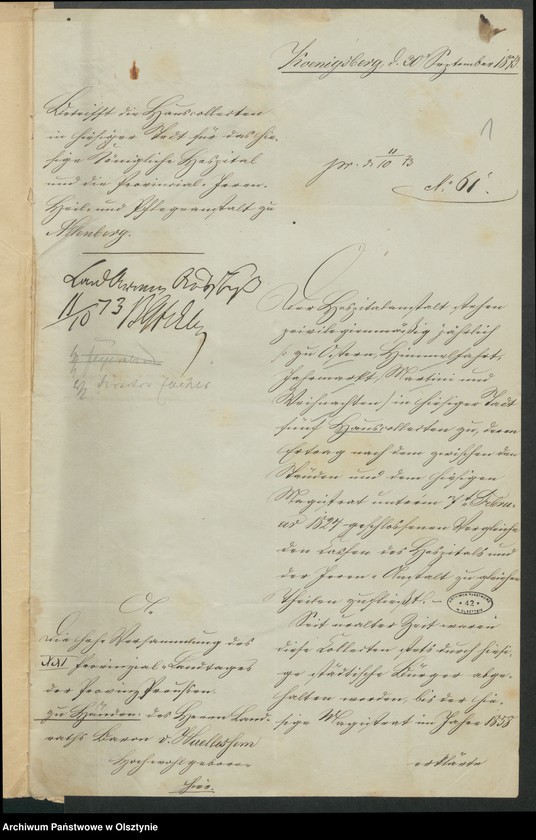 Koenigsberg, d. 20t September 1873.
Betrifft die Hauscollecten
in hiesiger Stadt für das hie-
sige Königliche Hospital
und die Provincial-Irren-
Heil- und Pflegeanstalt zu
Allenberg.
1
pr. d. 11/10 73
No 61.
11/10 73
Director
Der Hospitalanstalt stehen
privilegienmäßig jährlich
(: zu Ostern, Himmelfahrt,
Jahrmarkt, Martini und
Weihnachten) in hiesiger Stadt
fünf Hauscollecten zu, deren
Ertrag nach dem zwischen den
Ständen und dem hiesigen
Magistrat unterm 7t Febru-
ar 1827 geschlossenen Vergleiche
den Cassen des Hospitals und
der Irren-Anstalt zu gleichen
Theilen zufließt. –
ARCHIWUM PAŃSTWOWE
* 42 *
W OLSZTYNIE
Seit uralter Zeit waren
diese Collecten stets durch hiesi-
ge städtische Bürger abge-
halten worden, bis der hie-
sige Magistrat im Jahre 1858
erklärte
An
Die hohe Versammlung des
XXI Provinzial-Landtages
der Provinz Preußen.
zu Händen des Herrn Land-
raths Baron v. Huellessem
Hochwohlgeboren
hier.
Archiwum Państwowe w Olsztynie